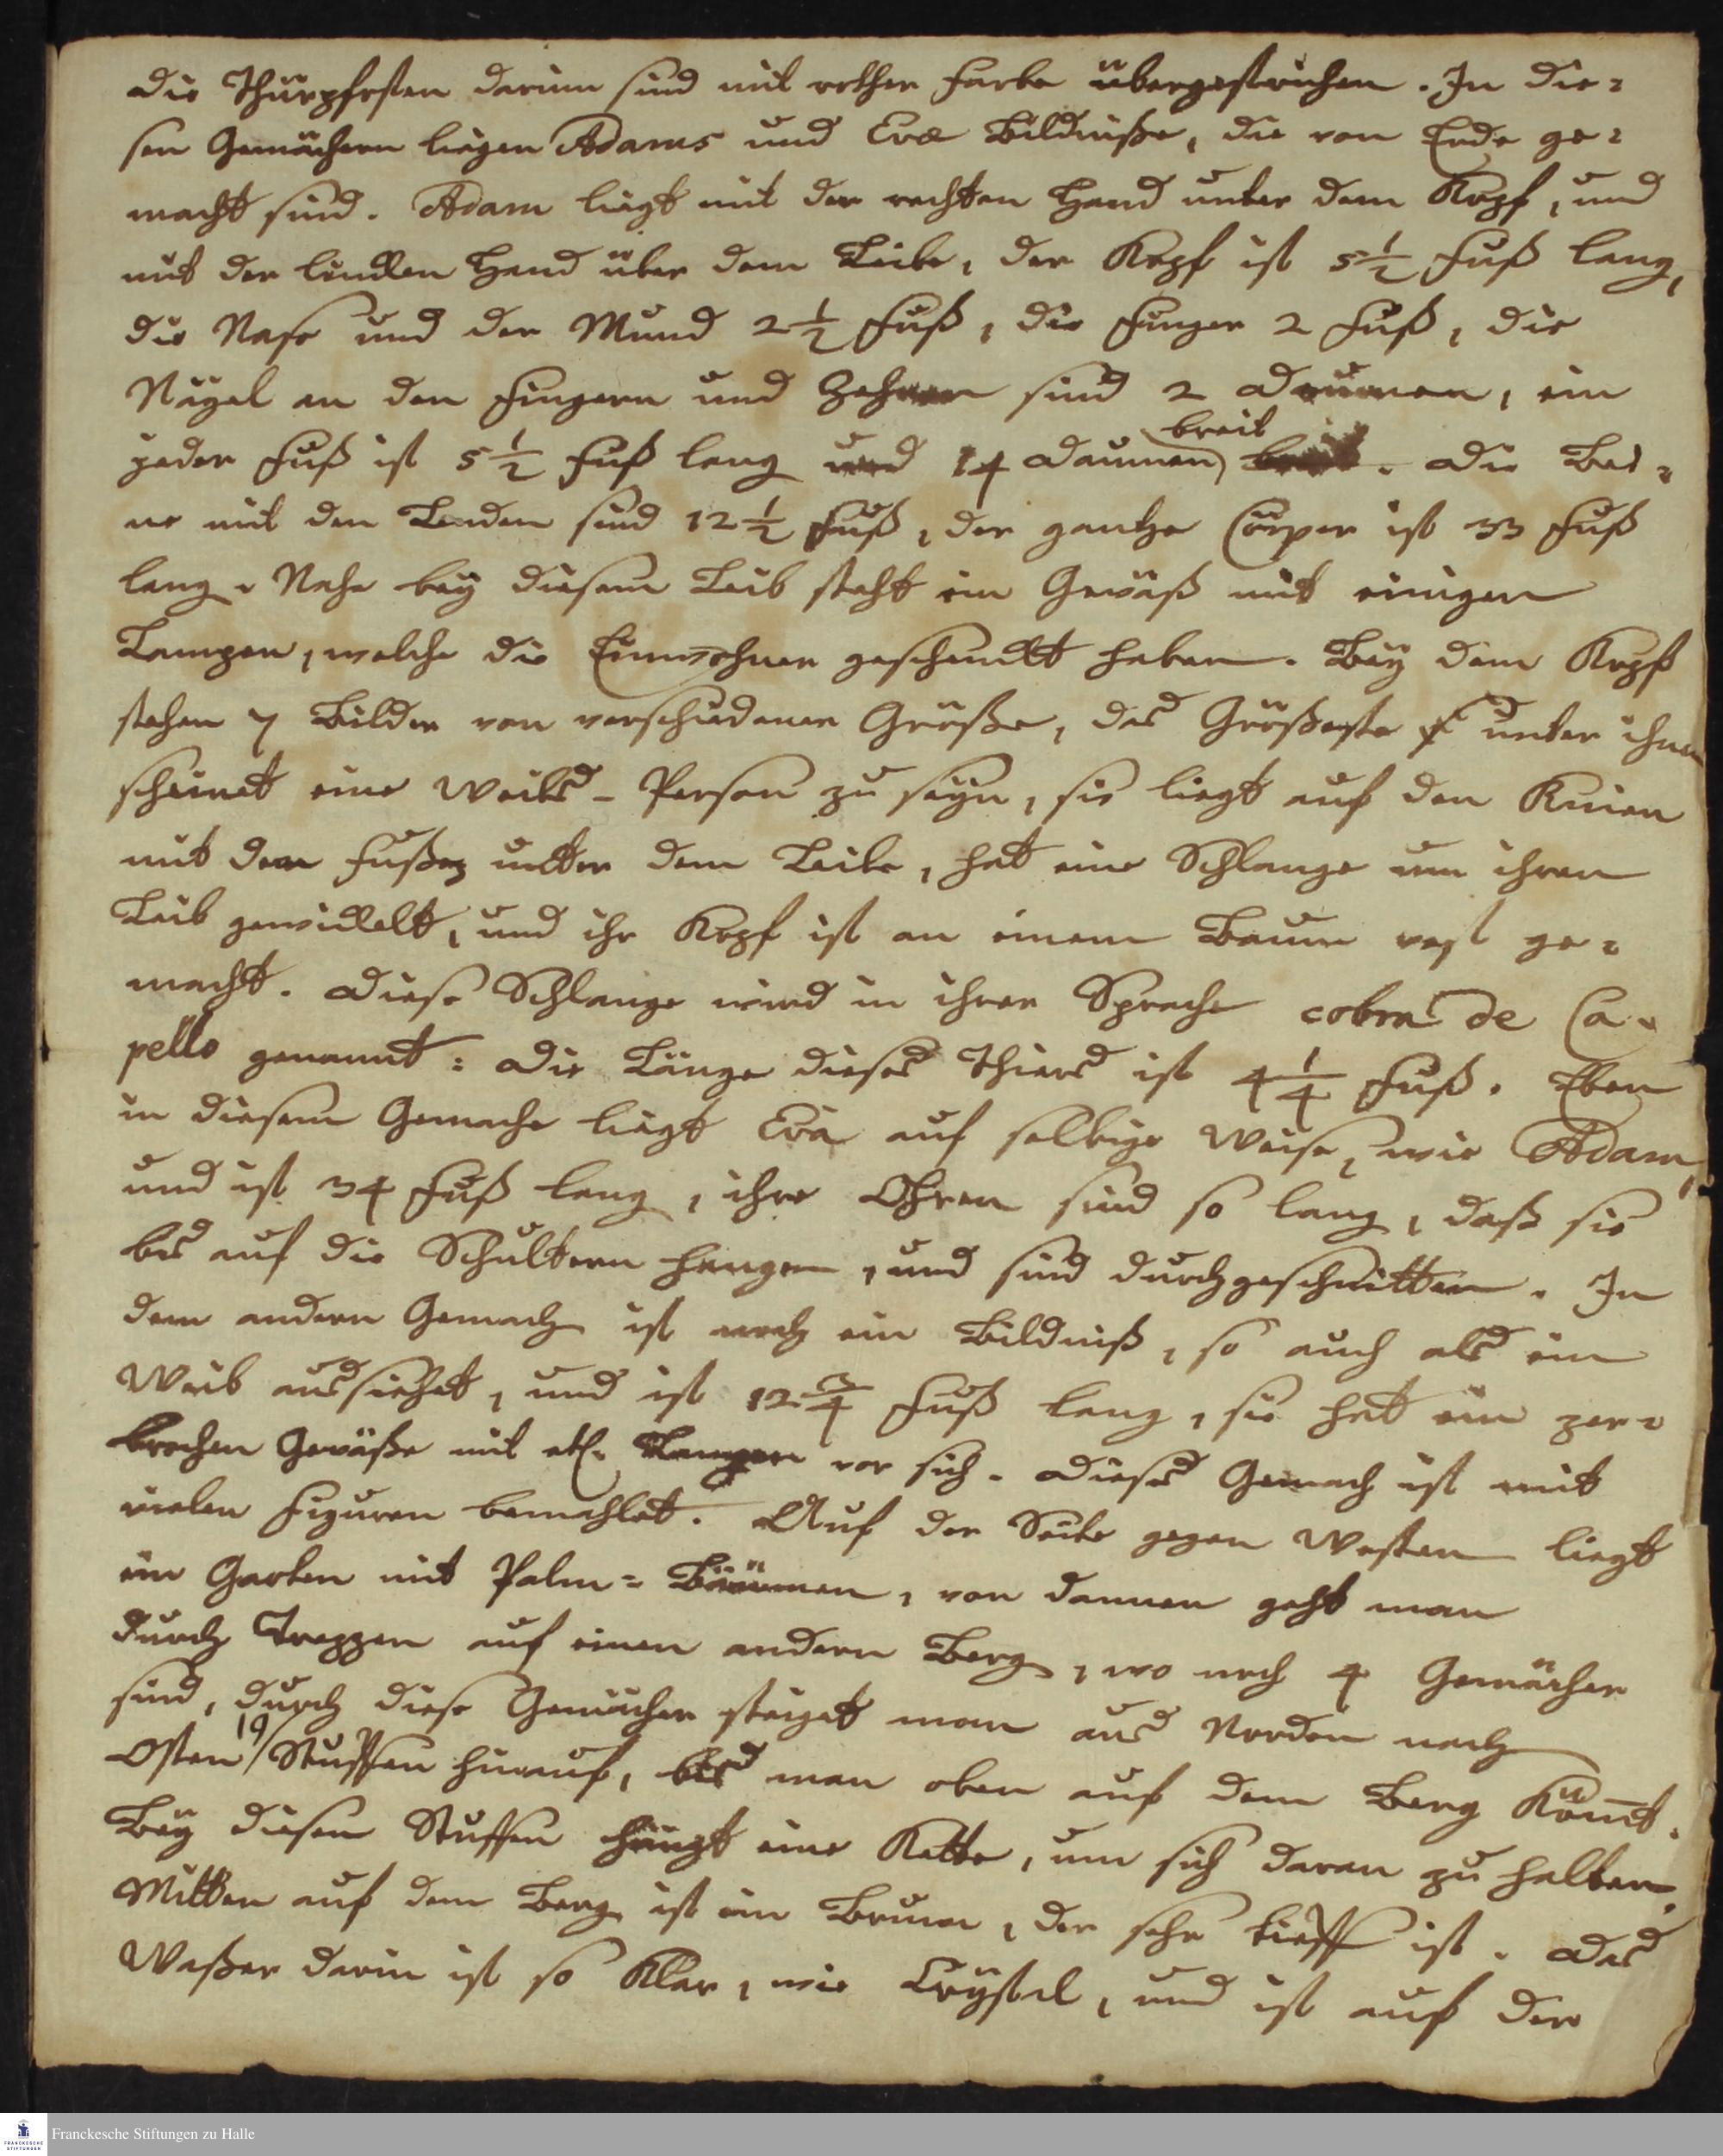 Die Thürpfosten darinn sind mit rother Farbe übergestrichen. In die-
sen Gemächern liegen Adams und Evæ Bildniße, die von Erde ge-
macht sind. Adam liegt mit der rechten Hand unter dem Kopf, und
mit der lincken Hand über dem Leibe, der Kopf ist 5 1/2 Fuß lang,
die Nase und der Mund 2 1/2 Fuß, die Finger 2 Fuß, die
Nägel an den Fingern und Zehen sind 2 Daumen, ein
jeder Fuß ist 5 1/2 Fuß lang und 14 Daumen breit. Die Bei-
ne mit den Lenden sind 12 1/2 Fuß, der gantze Cörper ist 33 Fuß
lang. Nahe bey diesem Leib steht ein Geväß mit einigen
Lampen, welche die Einwohner geschenckt haben. Bey dem Kopf
stehen 7 Bilder von verschiedener Größe, das Größeste unter ihnen
scheinet eine Weibs-Person zu seyn, sie liegt auf den Knien
mit den Fußen unter dem Leibe, hat eine Schlange um ihren
Leib gewickelt, und ihr Kopf ist an einem Baum vest ge-
macht. Diese Schlange wird in ihrer Sprache cobra de Ca-
pello genannt: Die Länge dieses Thiers ist 4 1/4 Fuß. Eben
in diesem Gemache liegt Eva auf selbige Weise, wie Adam,
und ist 34 Fuß lang, ihre Ohren sind so lang, daß sie
bis auf die Schultern hangen, und sind durchgeschnitten. In
dem andern Gemach ist noch ein Bildniß, so auch als ein
Weib aussiehet, und ist 12 3/4 Fuß lang, sie hat ein zer-
brochen Geväße mit etl. Lampen vor sich. Dieses Gemach ist mit
vielen Figuren bemahlet. Auf der Seite gegen Westen liegt
ein Garten mit Palm-Bäumen, von dannen geht man
durch Treppen auf einen andern Berg, wo noch 4 Gemächer
sind, durch diese Gemächer steiget man aus Norden nach
Osten 19 Stuffen hinauf, bis man oben auf dem Berg kömt.
Bey diesen Stuffen hängt eine Kette, um sich daran zu halten.
Mitten auf dem Berg ist ein Brunn, der sehr tieff ist. Das
Waßer darin ist so klar, wie Crystal, und ist auf der
Franckesche Stiftungen zu Halle